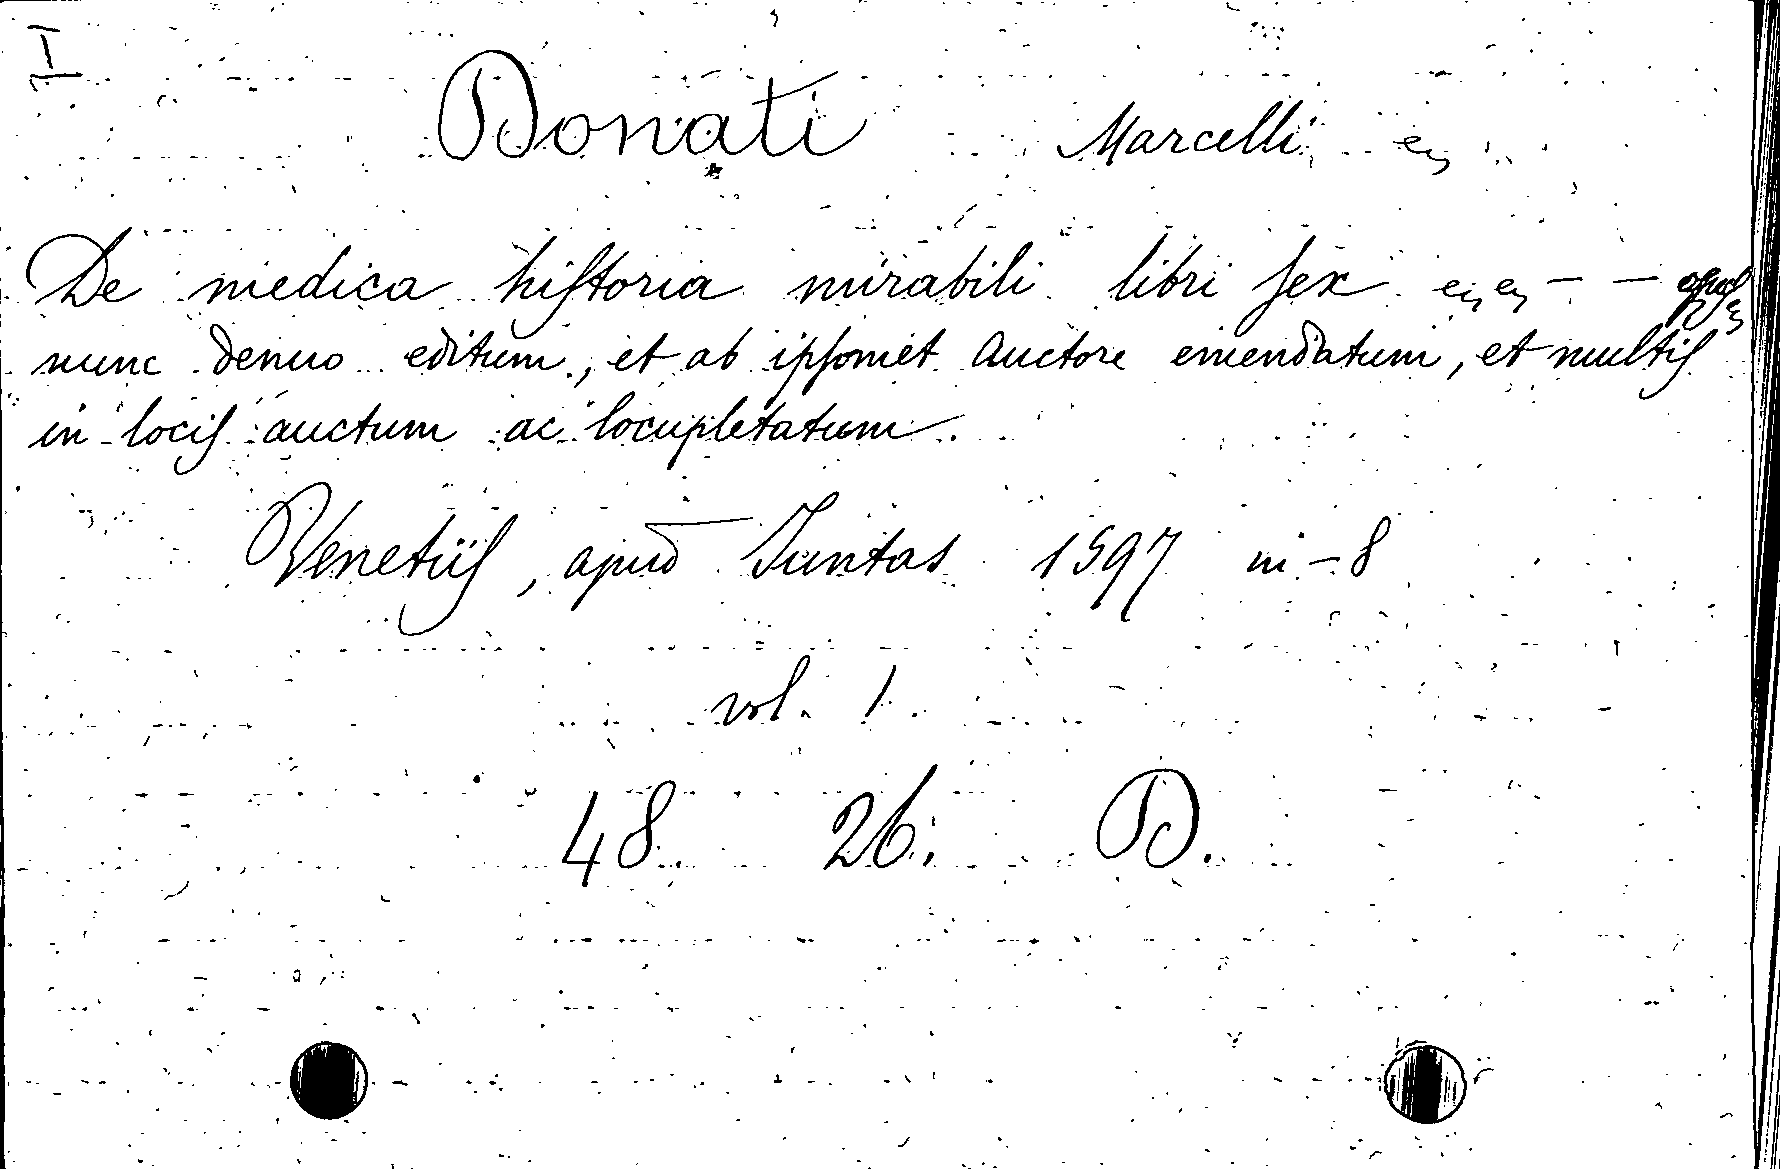 I
Donati Marcelli
De medica hiſtoria mirabili libri ſex — —
nunc denuo editum, et ab ipſomet Auctore emendatum, et multiſ
in lociſ auctum ac locupletatum.
Venetiiſ, apud Iuntas 1597 in-8
vol. 1.
48. 26. D.